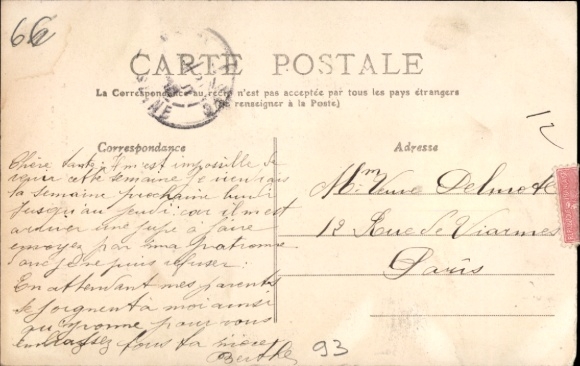 66
CARTE POSTALE
La Correspondance au recto n'est pas acceptée par tous les pays étrangers
(Se renseigner à la Poste)
SEINE
Correspondance
Adresse
12
Chère tante : Il m'est impossible de
venir cette semaine je viendrais
la semaine prochaine lundi
jusqu'au jeudi : car il m'est
arriver une jupe à faire
envoyez par ma patronne
que je ne puis refuser.
En attendant mes parents
se joignent a moi ainsi
qu'yvonne pour vous
embrassez tous ta nièce
Berthe
Mme Veuve Delmotte
12 Rue de Viarmes
Paris
93